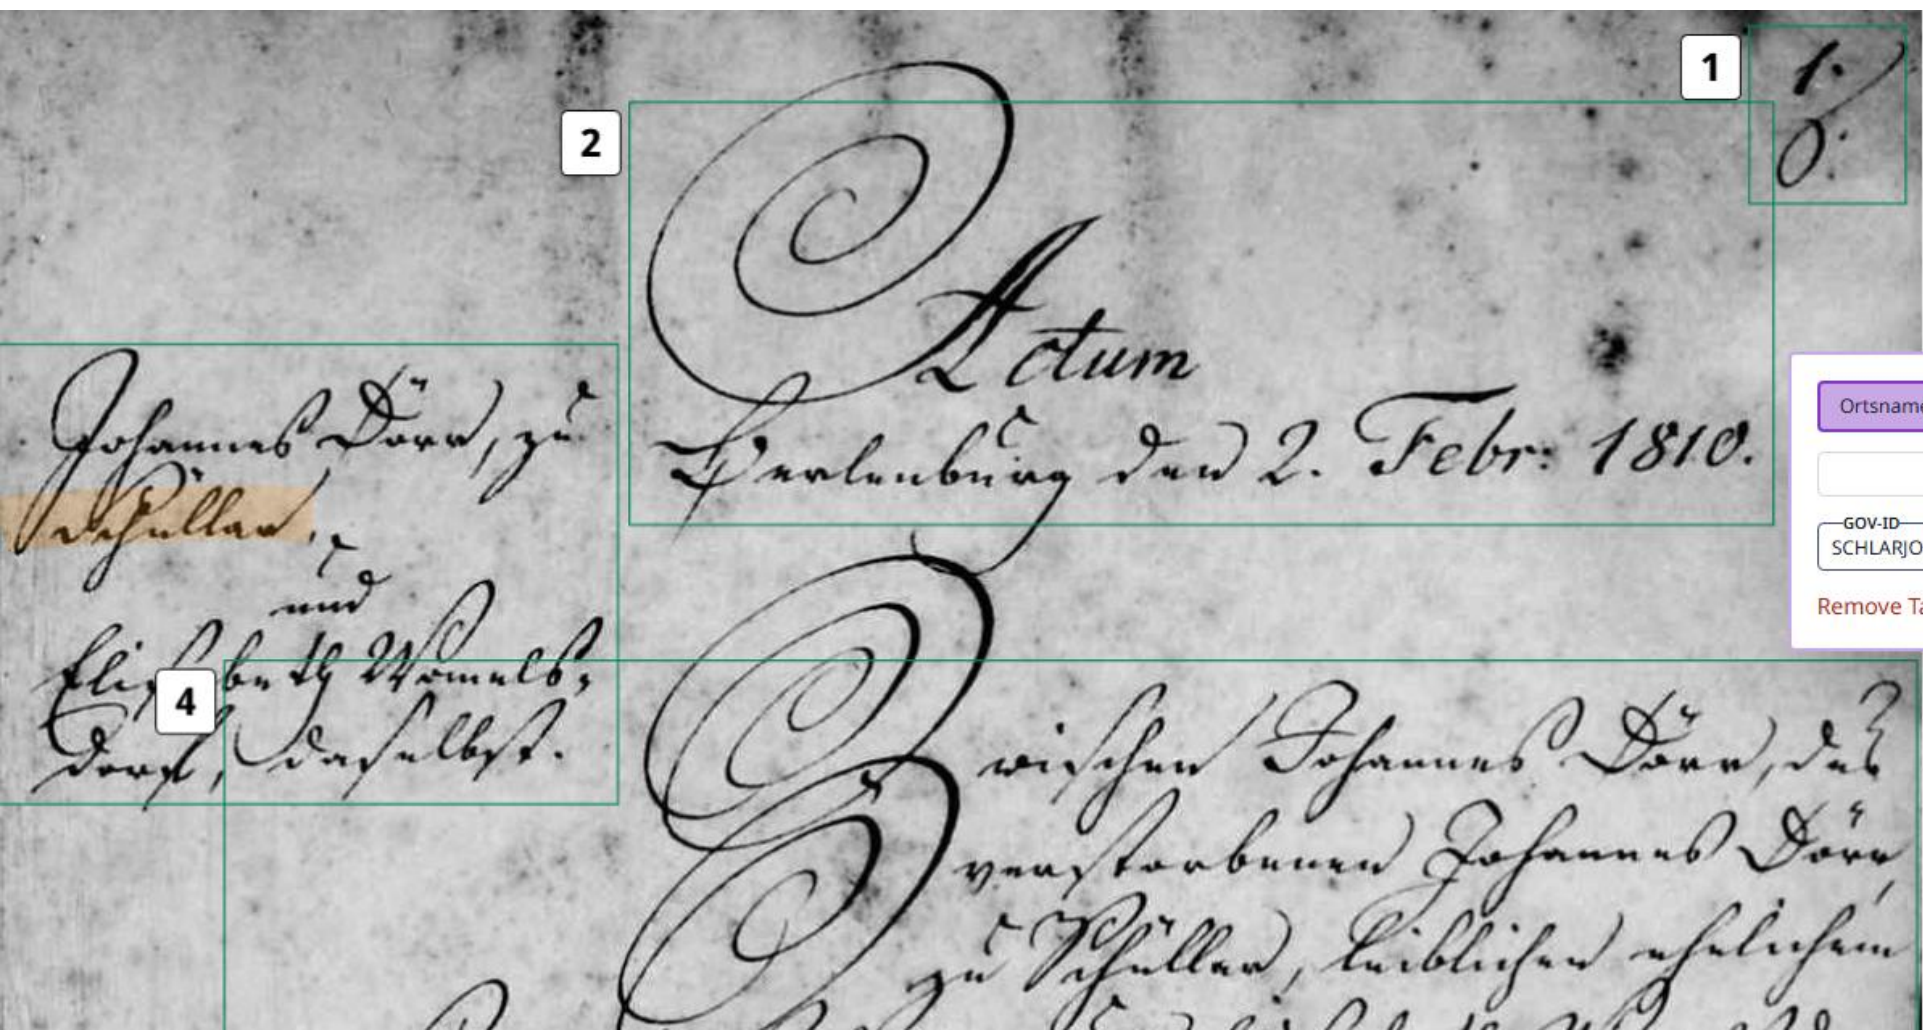 1
1.
0.
2
Actum
Berlenburg den 2. Febr: 1810.
Johannes Dörr, zu
Schüllar,
und
Elisabeth Womels-
dorf, daselbst.
4
Zwischen Johannes Dörr, des
verstorbenen Johannes Dörr,
zu Schüllar, leiblichen ehelichem
Ortsname
GOV-ID
SCHLARJO
Remove Ta